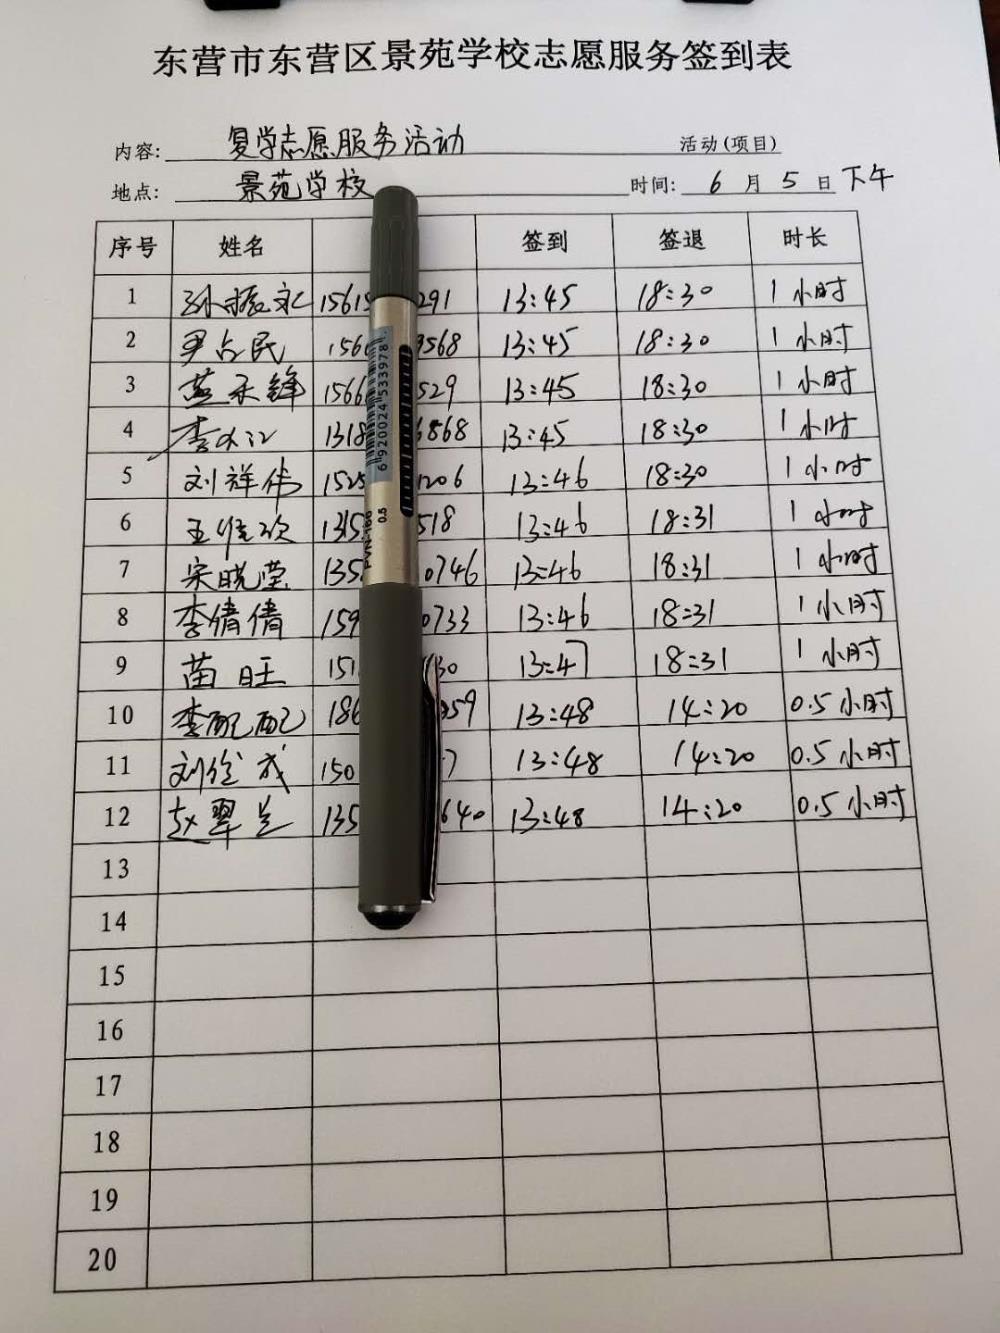 东营市东营区景苑学校志愿服务签到表
内容: 复学志愿服务活动 活动(项目)
地点: 景苑学校 时间: 6 月 5 日 下午
序号 姓名 签到 签退 时长
1 孙振礼 15615 291 13:45 18:30 1小时
2 尹占民 156 9568 13:45 18:30 1小时
3 燕永锋 1566 529 13:45 18:30 1小时
4 李 1318 6868 13:45 18:30 1小时
5 刘祥伟 1525 1206 13:46 18:30 1小时
6 王 1315 518 13:46 18:31 1小时
7 宋晓滢 135 0746 13:46 18:31 1小时
8 李倩倩 159 0733 13:46 18:31 1小时
9 苗旺 151 30 13:47 18:31 1小时
10 李配配 186 959 13:48 14:20 0.5小时
11 刘 成 150 7 13:48 14:20 0.5小时
12 赵翠兰 135 640 13:48 14:20 0.5小时
13
14
15
16
17
18
19
20
6 920024 533978
PVN-166
0.5